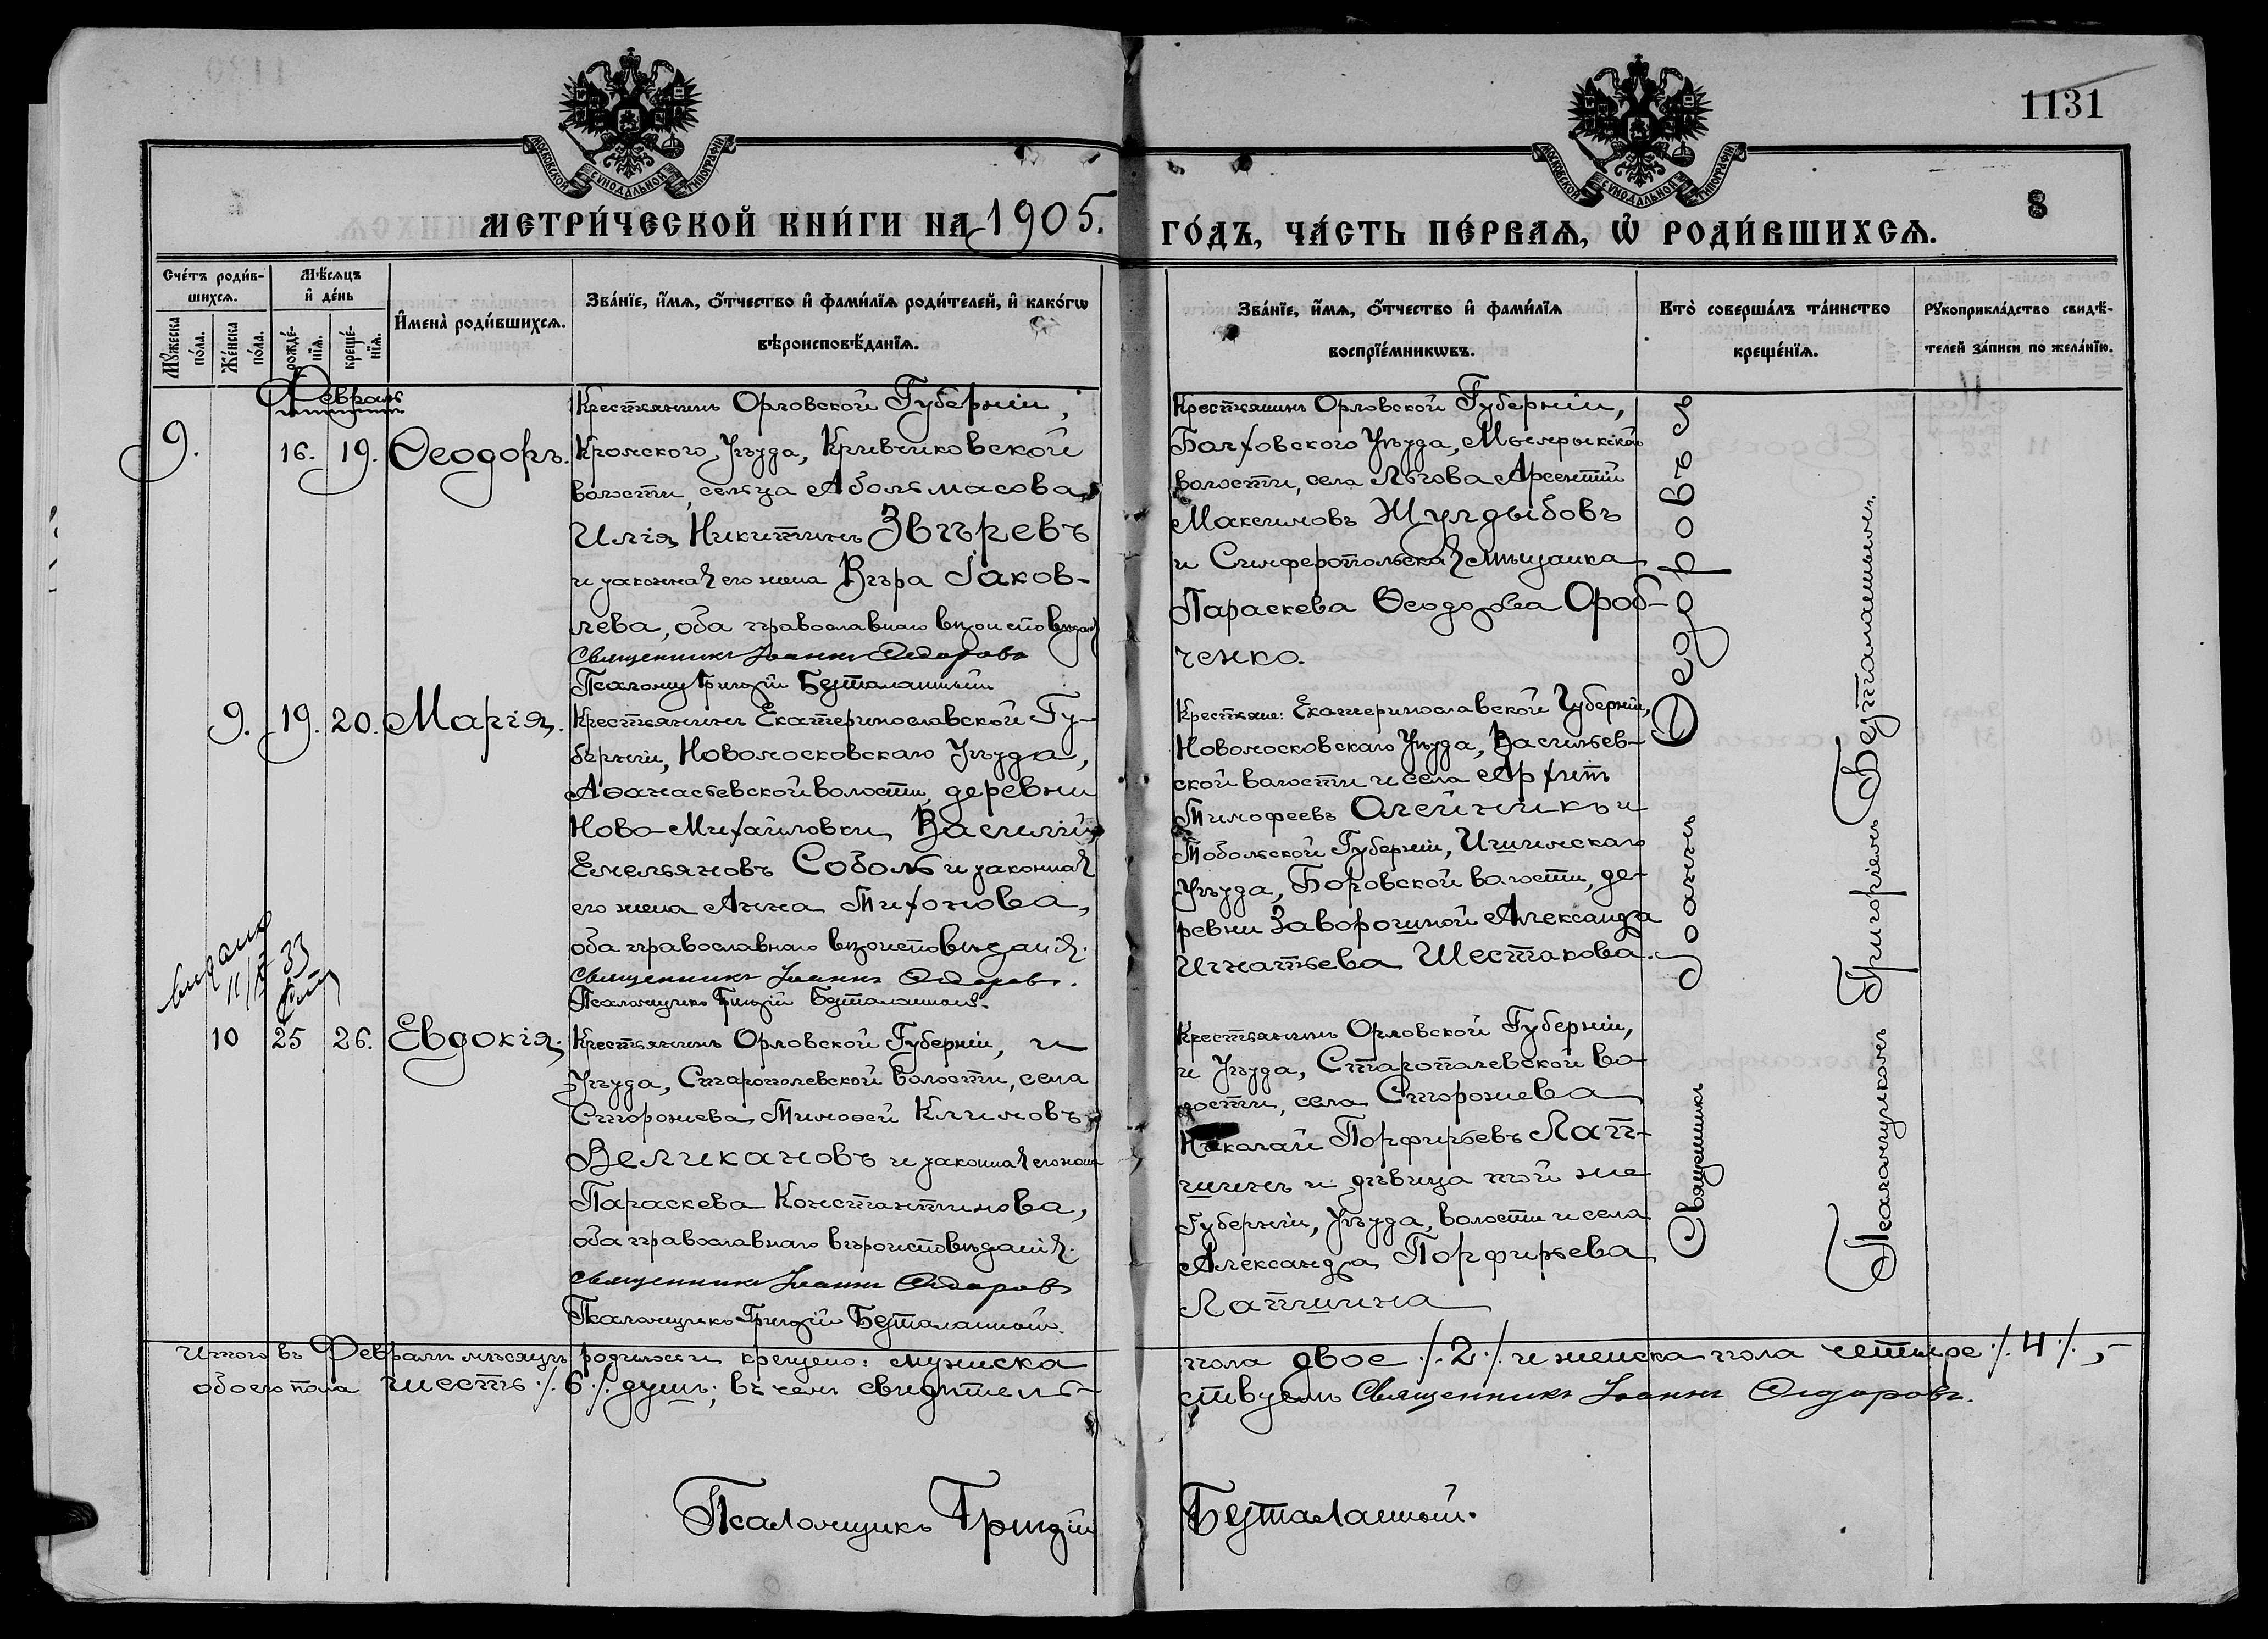 1131
8
МОСКОВСКОЙ СУНОДАЛЬНОЙ ТИПОГРАФИИ
МОСКОВСКОЙ СУНОДАЛЬНОЙ ТИПОГРАФИИ
МЕТРИ́ЧЕСКОЙ КНИ́ГИ НА 1905.
ГО́ДЪ, ЧА́СТЬ ПЕ́РВАѦ, Ѡ҆ РОДИ́ВШИХСѦ.
Сче́тъ роди́в-
шихсѧ.
Мѣ́сѧцъ
и҆ де́нь
Мꙋ́жеска
по́ла.
Же́нска
по́ла.
рожде́-
нїѧ.
креще́-
нїѧ.
И҆мена̀ роди́вшихсѧ.
Зва́нїе, и҆́мѧ, ѻ҆́тчество и҆ фами́лїѧ роди́телей, и҆ како́гѡ
вѣроисповѣ́данїѧ.
Зва́нїе, и҆́мѧ, ѻ҆́тчество и҆ фами́лїѧ
воспрїе́мникѡвъ.
Кто̀ соверша́лъ та́инство
креще́нїѧ.
Рꙋкоприкла́дство свидѣ́-
телей за́писи по жела́нїю.
Февраль
9.
16.
19.
Ѳеодоръ.
Крестьянинъ Орловской Губерніи,
Кромского Уѣзда, Кривчиковской
волости, сельца Абольмасова
Илія Никитинъ Звѣревъ
и законная его жена Вѣра Іаков-
лева, оба православнаго вѣроисповѣданія
Священникъ Іоаннъ Ѳедоровъ
Псаломщ. Григорій Безталанный
Крестьянинъ Орловской Губерніи,
Болховского Уѣзда,
волости, села Льгова Арсентій
Максимовъ Жулдыбовъ
и Симферопольская мѣщанка
Параскева Ѳеодорова Ороб-
ченко.
9.
19.
20.
Марія.
Крестьянинъ Екатеринославской Гу-
берніи, Новомосковскаго Уѣзда,
Аѳанасьевской волости, деревни
Ново-Михайловки Василій
Емельяновъ Соболь и законная
его жена Анна Тихонова,
оба православнаго вѣроисповѣданія.
Священникъ Іоаннъ Ѳедоровъ.
Псаломщикъ Григорій Безталанный.
Крестьяне: Екатеринославской Губерніи,
Новомосковскаго Уѣзда, Васильев-
ской волости и села Архипъ
Тимофеевъ Олейникъ и
Тобольской Губерніи, Ишимскаго
Уѣзда, Боровской волости, де-
ревни Заворошной Александра
Игнатьева Шестакова.
10
25
26.
Евдокія.
Крестьянинъ Орловской Губерніи, и
Уѣзда, Старополевской волости, села
Сторожева Тимоѳей Климовъ
Великановъ и законная его жена
Параскева Константинова,
оба православнаго вѣроисповѣданія.
Священникъ Іоаннъ Ѳедоровъ
Псаломщикъ Григорій Безталанный.
Крестьянинъ Орловской Губерніи,
и Уѣзда, Старополевской во-
лости, села Сторожева
Николай Порфирьевъ Лап-
шинъ и дѣвица той же
Губерніи, Уѣзда, волости и села
Александра Порфирьева
Лапшина
Священникъ Іоаннъ Ѳедоровъ съ
Псаломщикомъ Григоріемъ Безталаннымъ.
Итого въ Февралѣ мѣсяцѣ родилось и крещено: мужска
пола двое ./. 2 ./. и женска пола четыре ./. 4 ./.,-
обоего пола шесть ./. 6 ./. душъ; въ чемъ свидѣтель-
ствуемъ Священникъ Іоаннъ Ѳедоровъ.
Псаломщикъ Григорій
Безталанный.